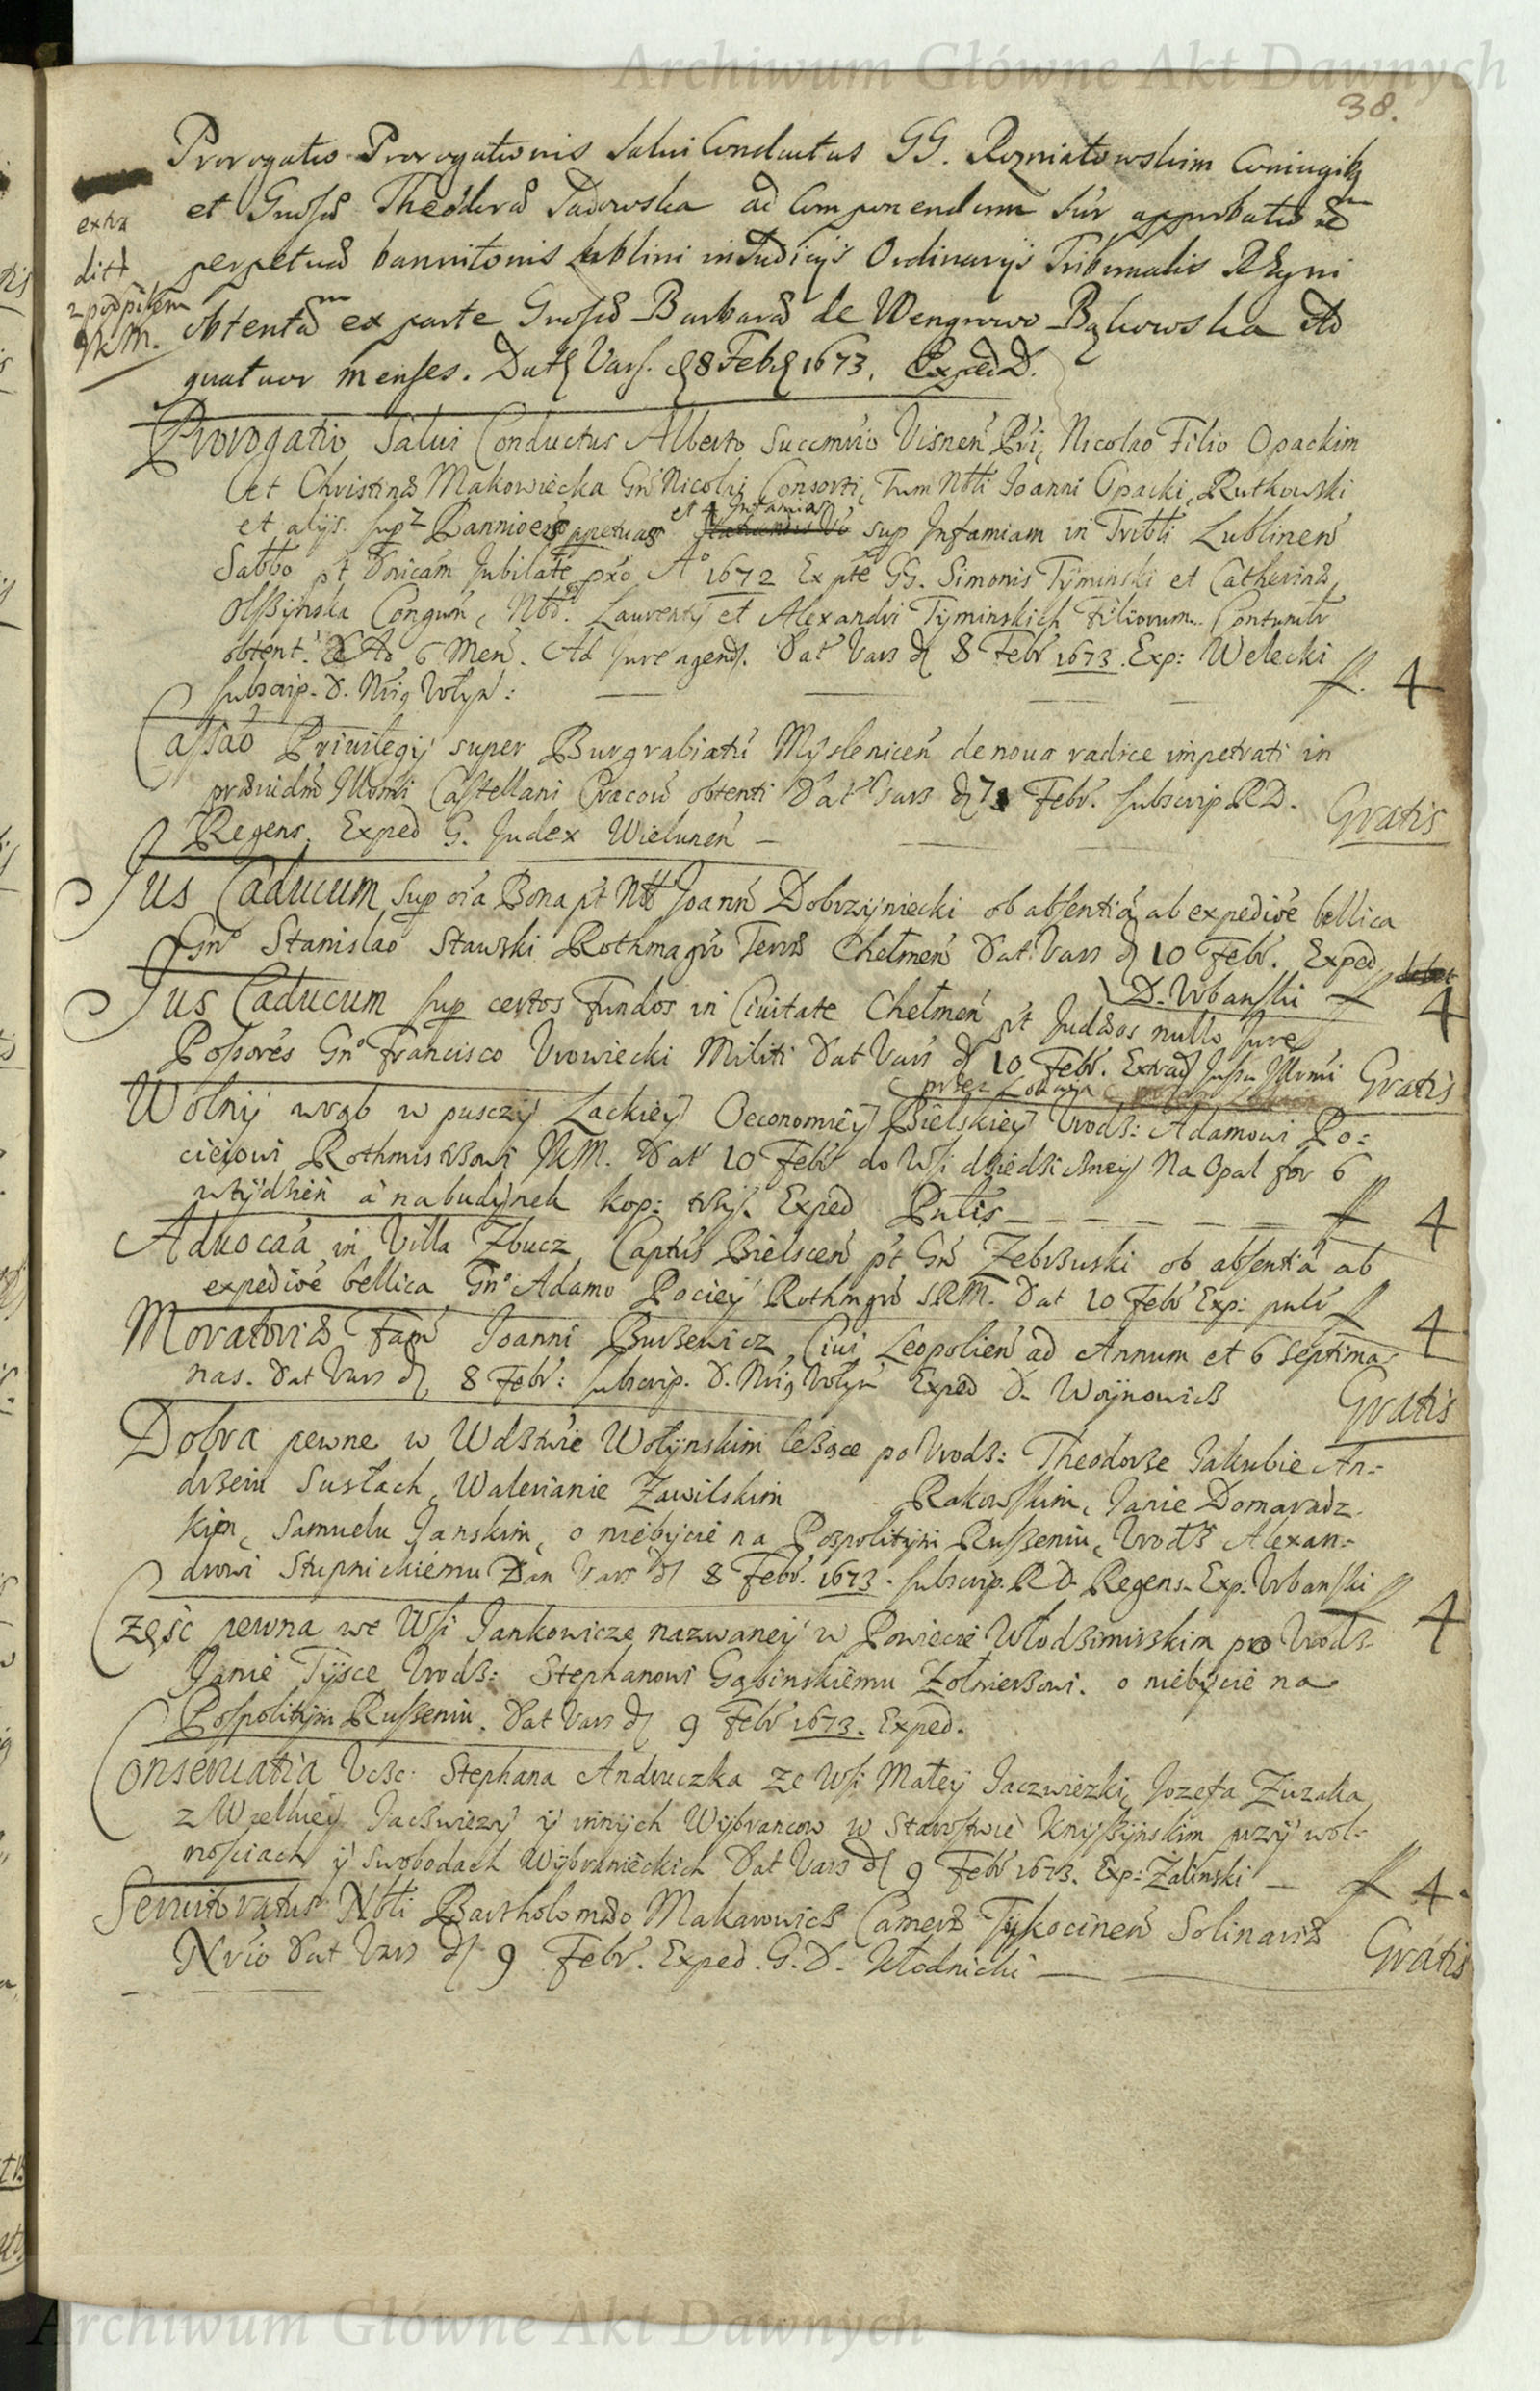 Archiwum Główne Akt Dawnych
38.
Prorogatio Prorogationis Salui Conductus GG. Rozniatowskim Coniugib
et Gnosæ Theodoræ Sadowska ad Componendum sur approbatio
perpetuæ bannitionis Lublini in Iudicijs Ordinarijs Tribunalis Regni
obtentæ ex parte Gnosæ Barbaræ de Wengrowo Bąkowska Ad
quatuor Menses. Dat Vars. d 8 Feb 1673. Exped D.
extra
dit
z podpisem
JKM.
Prorogatio Salui Conductus Alberto Succmrio Visnen Pri, Nicolao Filio Opackim
et Christinæ Makowiecka Gn Nicolai Consorti, Tum Nbli Joanni Opacki, Rutkowski
et alijs sup 2 Bannioes ppetuas et 4 Infamias sup Infamiam in Tribli Lublinen
Sabbo pt Dnicam Jubilate pxo Aº 1672 Ex pte GG. Simonis Tyminski et Catherinæ
Olszynska Congum, Nbb. Laurentij et Alexandri Tyminskich Filiorum Contumlr
obtent. Ad 6 Men. Ad Jure agend. Dat Vars d 8 Febr 1673. Exp: Welecki
subscrip. D. Nrig Wołyn: ff. 4
Cassao Priuilegij super Burgrabiatu Myslenicen de noua radice impetrati in
præiudm Illmi Castellani Cracow obtenti Dat Vars d 7 Febr. subscrip RD.
Regens. Exped G. Judex Wielunen Gratis
Jus Caducum sup oia Bona pt Nbl Joann Dobrzyniecki ob absentia ab expedioe bellica
Gno Stanislao Stawski Rothmagro Terræ Chełmen Dat Vars d 10 Febr. Exped
D. Vrbanski ff 4
Jus Caducum sup certos Fundos in Ciuitate Chełmen pt Judæos nullo Jure
Possores Gno Francisco Vrowiecki Militi Dat Vars d 10 Febr. Extrad Jussu Illmi Gratis
Wolny wrąb w pusczy Lackiey Oeconomiey Bielskiey Vrodz: Adamowi Po=
cieiowi Rothmistrzowi JKM. Dat 10 Febr do Wsi dziedziczney Na Opal for 6
w tydzień a na budynek kop: trzy. Exped Putis ff 4
Aduocaa in Villa Zbucz, Captus Bielscen pt Gn Zebrzuski ob absentia ab
expedioe bellica Gno Adamo Pociey Rothmgro SRM. Dat 10 Febr Exp: puli ff 4
Moratoriæ Fam Joanni Burzewicz Ciui Leopolien ad Annum et 6 Septima=
nas. Dat Vars d 8 Febr: subscrip. D. Nrig Wołyn Exped D. Woynowicz Gratis
Dobra pewne w Wdztwie Wołynskim leżące po Vrodz: Theodorze Jakubie An=
drzeiu Susłach, Walerianie Zawilskim Rakowskim, Janie Domaradz
kim, Samuelu Janskim, o niebycie na Pospolitym Russeniu, Vrodz Alexan=
drowi Stupnickiemu Dan Vars d 8 Febr. 1673. subscrip. RD. Regens. Exp: Vrbanski ff 4
Częsc pewna we Wsi Jankowicze nazwaney w Powiecie Włodzimirskim po Vrodz
Janie Tysce Vrodz: Stephanowi Gąsinskiemu Żołnierzowi. o niebycie na
Pospolitym Russeniu. Dat Vars d 9 Febr 1673. Exped.
Conseruatia Vczc: Stephana Andruczka ze Wsi Małey Jaczwiezki, Jozefa Zuzaka
z Wielkiey Jaczwiezy y innych Wybrancow w Starostwie Knyszynskim przy wol=
nosciach y swobodach Wybranieckich Dat Vars d 9 Febr 1673. Exp: Żalinski ff 4.
Seruitoratus Nbli Bartholomæo Makarowicz Cameræ Tykocinen Solinariæ
Nrio Dat Vars d 9 Febr. Exped. G. D. Kłodnicki Gratis
Archiwum Główne Akt Dawnych